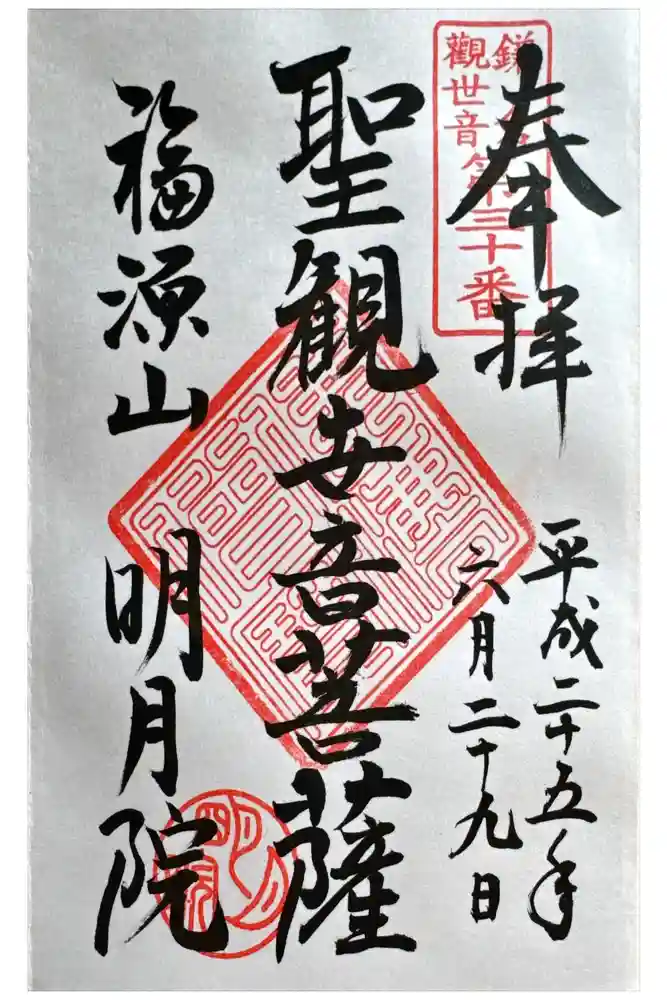 奉拝
鎌倉
観世音第三十番
平成二十五年
六月二十九日
聖観世音菩薩
福源山
明月院